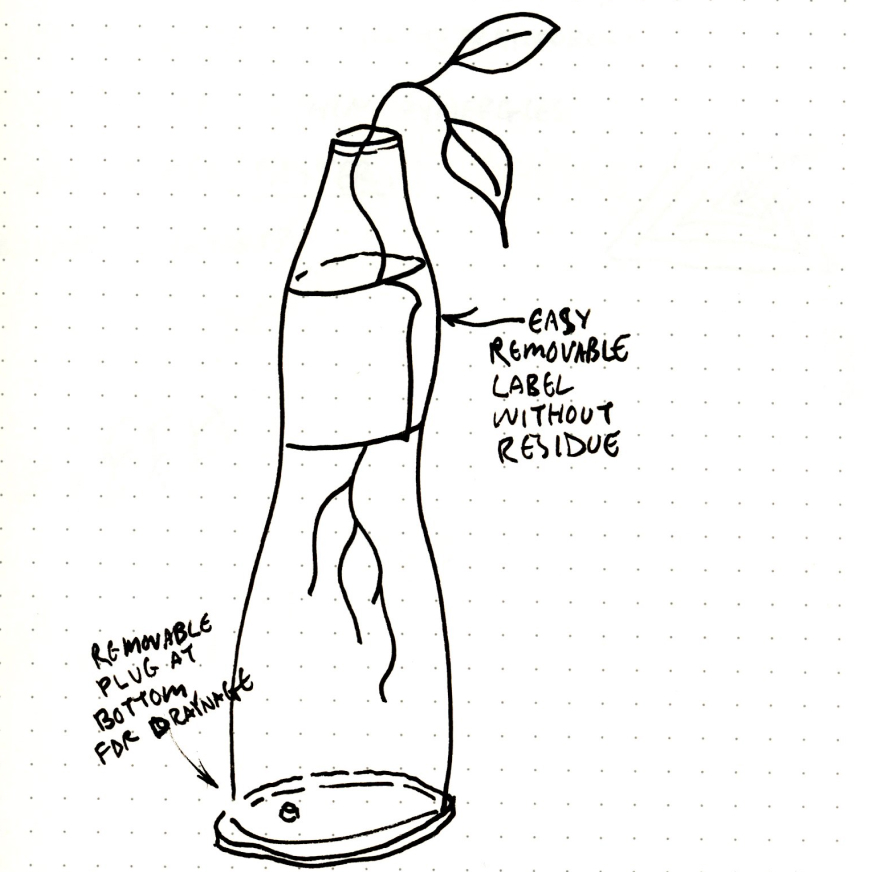 EASY
REMOVABLE
LABEL
WITHOUT
RESIDUE
REMOVABLE
PLUG AT
BOTTOM
FOR DRAYNAGE